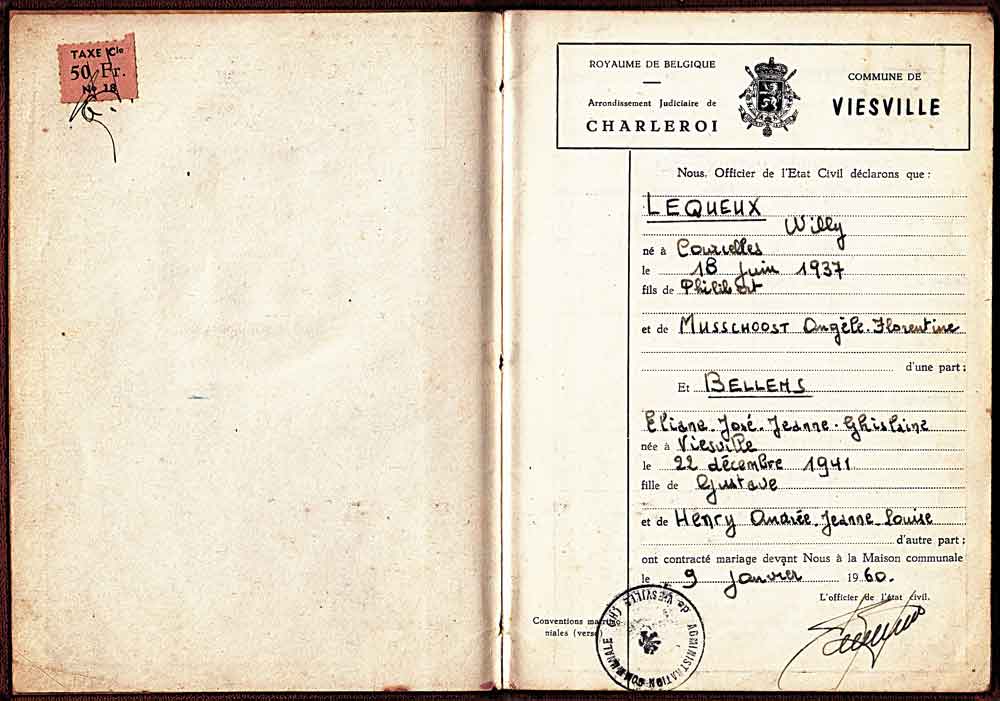 TAXE Cle
50 Fr.
No 18
ROYAUME DE BELGIQUE
Arrondissement Judiciaire de
CHARLEROI
COMMUNE DE
VIESVILLE
Nous, Officier de l'Etat Civil déclarons que :
LEQUEUX
Willy
né à Courcelles
le 18 juin 1937
fils de Philibert
et de MUSSCHOOST Angèle-Florentine
d'une part ;
Et BELLEMS
Eliane-José-Jeanne-Ghislaine
née à Viesville
le 22 décembre 1941
fille de Gustave
et de Henry Andrée-Jeanne-Louise
d'autre part ;
ont contracté mariage devant Nous à la Maison communale
le 9 janvier 1960.
L'officier de l'état civil.
Conventions matrimo-
niales (verso)
ADMINISTRATION COMMUNALE
de VIESVILLE